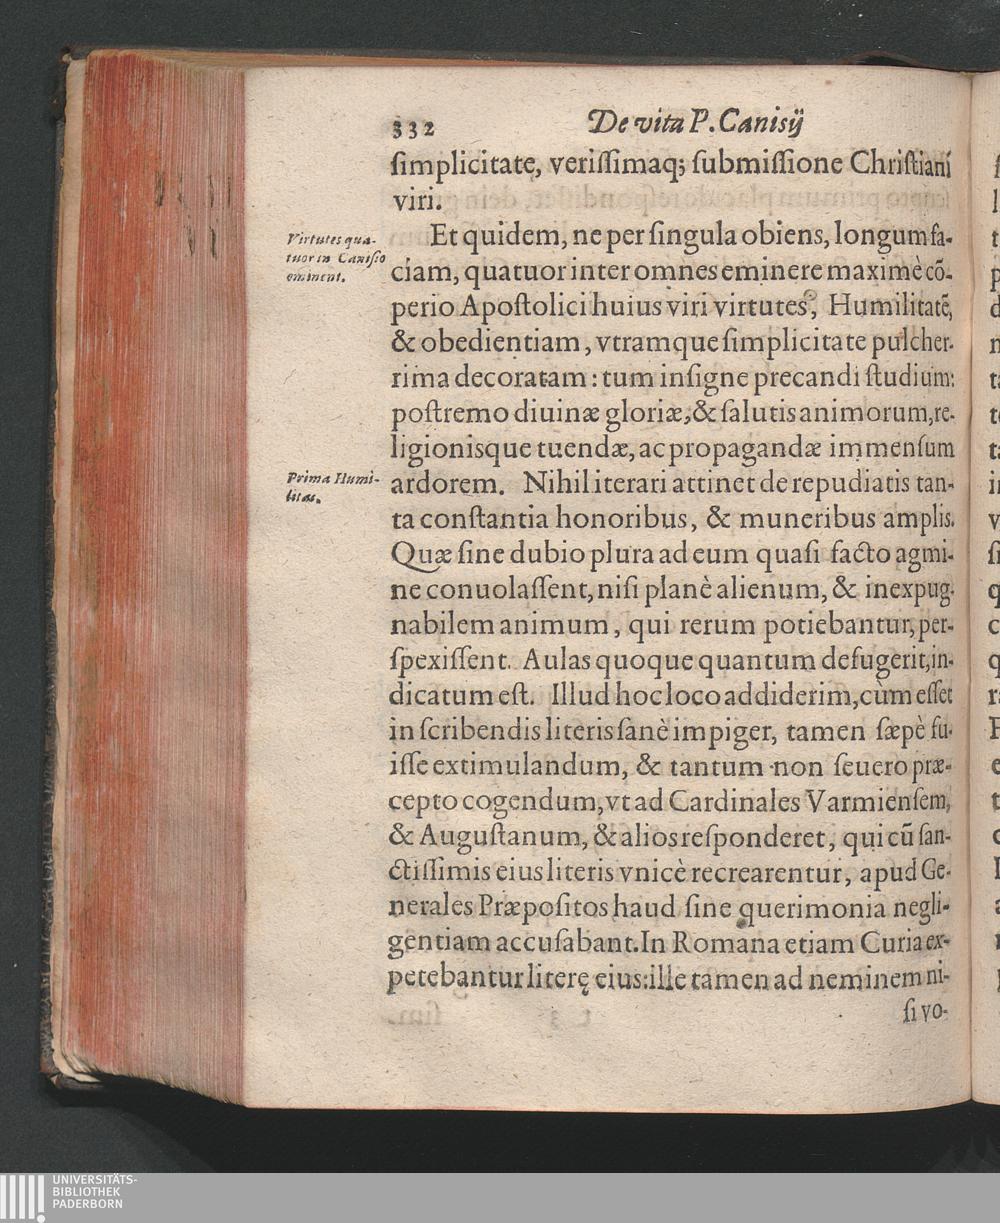 332 De vita P. Canisij
ſimplicitate, veriſſimaq; ſubmiſſione Chriſtiani
viri.
Virtutes qua-
tuor in Caniſio
eminent.
Et quidem, ne per ſingula obiens, longum fa-
ciam, quatuor inter omnes eminere maximè cō-
perio Apoſtolici huius viri virtutes, Humilitatē,
& obedientiam, vtramque ſimplicitate pulcher-
rima decoratam: tum inſigne precandi ſtudium:
poſtremo diuinæ gloriæ, & ſalutis animorum, re-
ligionisque tuendæ, ac propagandæ immenſum
Prima Humi-
litas.
ardorem. Nihil iterari attinet de repudiatis tan-
ta conſtantia honoribus, & muneribus amplis.
Quæ ſine dubio plura ad eum quaſi facto agmi-
ne conuolaſſent, niſi planè alienum, & inexpug-
nabilem animum, qui rerum potiebantur, per-
ſpexiſſent. Aulas quoque quantum defugerit, in-
dicatum eſt. Illud hoc loco addiderim, cùm eſſet
in ſcribendis literis ſanè impiger, tamen ſæpè fu-
iſſe extimulandum, & tantum non ſeuero præ-
cepto cogendum, vt ad Cardinales Varmienſem,
& Auguſtanum, & alios reſponderet, qui cū ſan-
ctiſſimis eius literis vnicè recrearentur, apud Ge-
nerales Præpoſitos haud ſine querimonia negli-
gentiam accuſabant. In Romana etiam Curia ex-
petebantur literę eius: ille tamen ad neminem ni-
ſi vo-
UNIVERSITÄTS-
BIBLIOTHEK
PADERBORN